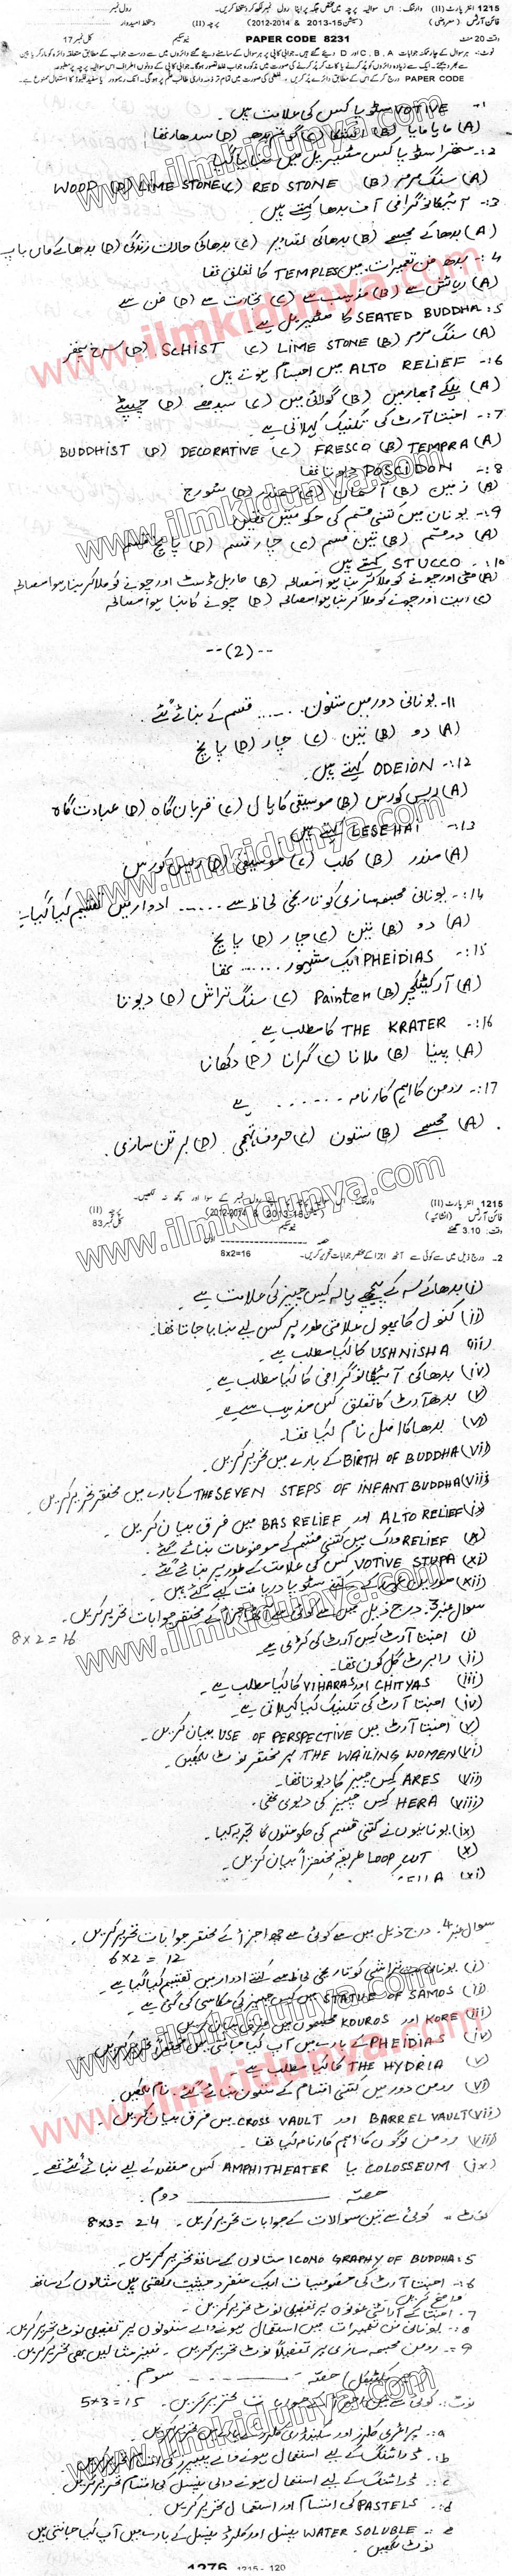 1215 انٹر پارٹ (II) وارننگ: اس سوالیہ پرچہ میں مختص جگہ پر اپنا رول نمبر لکھ کر دستخط کریں۔ رول نمبر
فائن آرٹس (معروضی) (سیشن 15-2013 & 2014-2012) پرچہ (II) دستخط امیدوار
وقت 20 منٹ PAPER CODE 8231 کل نمبر 17
1- VOTIVE سٹوپا کس کی علامت ہیں۔
2:- سٹوپا کس مٹیریل میں بنایا گیا
(A) سنگ مرمر (B) RED STONE (C) LIME STONE (D) WOOD
3:- آئیکانوگرافی آف بدھا کہتے ہیں
(A) بدھا کے مجسمے (B) بدھا کی تصاویر (C) بدھا کی حالات زندگی (D) بدھا کے ماں باپ
4:- بدھ فن تعمیرات میں TEMPLES کا تعلق تھا
(A) رہائش سے (B) مذہب سے (C) تجارت سے (D) فن سے
5:- SEATED BUDDHA کا مٹیریل ہے۔
(A) سنگ مرمر (B) LIME STONE (C) SCHIST (D) سرخ پتھر
6:- ALTO RELIEF میں اجسام ہوتے ہیں
(A) ہلکے ابھار میں (B) گولائی میں (C) سیدھے (D) چپٹے
7:- اجنتا آرٹ کی تکنیک کہلاتی ہے
(A) TEMPRA (B) FRESCO (C) DECORATIVE (D) BUDDHIST
8:- POSCIDON دیوتا تھا
(A) زمین (B) آسمان (C) سمندر (D) سورج
9:- یونان میں کتنی قسم کی حکومتیں تھیں
(A) دو قسم (B) تین قسم (C) چار قسم (D) پانچ قسم
10:- STUCCO کہتے ہیں
(A) مٹی اور چونے کو ملا کر بنایا ہوا مصالحہ (B) ماربل ڈسٹ اور چونے کو ملا کر بنایا ہوا مصالحہ
(C) ریت اور چونے کو ملا کر بنایا ہوا مصالحہ (D) چونے کا بنایا ہوا مصالحہ
--(2)--
11- یونانی دور میں ستون ...... قسم کے بنائے گئے۔
(A) دو (B) تین (C) چار (D) پانچ
12:- ODEION کہتے ہیں۔
(A) ریس کورس (B) موسیقی کا ہال (C) قربان گاہ (D) عبادت گاہ
13:- LESEHAI کہتے ہیں
(A) مندر (B) کلب (C) موسیقی (D) ریس کورس
14:- یونانی مجسمہ سازی کو تاریخی لحاظ سے ...... ادوار میں تقسیم کیا گیا ہے
(A) دو (B) تین (C) چار (D) پانچ
15:- PHEIDIAS ایک مشہور ...... تھا
(A) آرکیٹیکچر (B) Painter (C) سنگ تراش (D) دیوتا
16:- THE KRATER کا مطلب ہے
(A) پینا (B) ملانا (C) گرانا (D) دکھانا
17:- رومن کا اہم کارنامہ ...... ہے
(A) مجسمے (B) ستون (C) حروف تہجی (D) برتن سازی۔
1215 انٹر پارٹ (II) وارننگ: اس سوالیہ پرچہ پر رول نمبر کے سوا اور کچھ نہ لکھیں۔
فائن آرٹس (انشائیہ) (سیشن 15-2013 & 2014-2012) پرچہ (II)
وقت: 3.10 گھنٹے کل نمبر 83
2- درج ذیل میں سے کوئی سے آٹھ اجزا کے مختصر جوابات تحریر کریں۔ 8x2=16
(i) بدھا کے سر کے پیچھے ہالہ کس چیز کی علامت ہے
(ii) کنول کا پھول علامتی طور پر کس لیے بنایا جاتا تھا۔
(iii) USHNISHA کا کیا مطلب ہے
(iv) بدھا کی آئیکانوگرافی کا کیا مطلب ہے
(v) بدھ آرٹ کا تعلق کس مذہب سے ہے۔
(vi) بدھا کا اصل نام کیا تھا۔
(vii) BIRTH OF BUDDHA کے بارے میں تحریر کریں۔
(viii) THE SEVEN STEPS OF INFANT BUDDHA کے بارے میں مختصر تحریر کریں۔
(ix) ALTO RELIEF اور BAS RELIEF میں فرق بیان کریں۔
(x) RELIEF ورک میں کتنی قسم کے موضوعات بنائے گئے۔
(xi) VOTIVE STUPA کس کی علامت کے طور پر بنائے گئے۔
سوال نمبر 3۔ درج ذیل میں سے کوئی سے آٹھ اجزا کے مختصر جوابات تحریر کریں۔
8x2=16
(i) اجنتا آرٹ کس آرٹ کی کڑی ہے
(ii) رابرٹ گل کون تھا۔
(iii) CHITYAS اور VIHARAS کا کیا مطلب ہے۔
(iv) اجنتا آرٹ کی تکنیک کیا کہلاتی ہے۔
(v) اجنتا آرٹ میں USE OF PERSPECTIVE بیان کریں۔
(vi) THE WAILING WOMEN پر مختصر نوٹ لکھیں۔
(vii) ARES کس چیز کا دیوتا تھا۔
(viii) HERA کس چیز کی دیوی تھی۔
(ix) یونانیوں نے کتنی قسم کی حکومتوں کا تجربہ کیا۔
(x) LOOP CUT طریقہ مختصراً بیان کریں۔
(xi)
سوال نمبر 4۔ درج ذیل میں سے کوئی سے چھ اجزا کے مختصر جوابات تحریر کریں۔
6x2=12
(i) یونانی سنگ تراشی کو تاریخی لحاظ سے کتنے ادوار میں تقسیم کیا گیا ہے
(ii) STATUE OF SAMOS میں کس چیز کی عکاسی کی گئی ہے
(iii) KORE اور KOUROS مجسموں میں فرق بیان کریں
(iv) PHEIDIAS کے بارے میں آپ کیا جانتے ہیں مختصر تحریر کریں
(v) THE HYDRIA کا کیا مطلب ہے
(vi) رومن دور میں کتنی اقسام کے ستون بنائے گئے۔ نام لکھیں۔
(vii) BARREL VAULT اور CROSS VAULT میں فرق بیان کریں۔
(viii) رومن لوگوں کا اہم کارنامہ کیا تھا
(ix) COLOSSEUM یا AMPHITHEATER کس مقصد کے لیے بنائے گئے تھے۔
حصہ دوم
نوٹ:- کوئی سے تین سوالات کے جوابات تحریر کریں۔ 8x3=24
5:- ICONOGRAPHY OF BUDDHA مثالوں کے ساتھ تحریر کریں۔
6:- اجنتا آرٹ کی خصوصیات ایک منفرد حیثیت رکھتی ہیں مثالوں کے ساتھ
واضح کریں
7:- اجنتا کے آرائشی نمونوں پر تفصیلی نوٹ تحریر کریں۔
8:- یونانی فن تعمیرات میں استعمال ہونے والے ستونوں پر تفصیلی نوٹ تحریر کریں۔
9:- رومن مجسمہ سازی پر تفصیلاً نوٹ تحریر کریں۔ نیز مثالیں بھی تحریر کریں۔
(پریکٹیکل) حصہ سوم
5x3=15
a:- پرائمری کلرز اور سکینڈری کلرز کے بارے میں تحریر کریں
b:- ڈرائنگ کے لیے استعمال ہونے والے پیپرز کی اقسام تحریر کریں
c:- ڈرائنگ کے لیے استعمال ہونے والی پنسل کی اقسام تحریر کریں
d:- PASTELS کی اقسام اور استعمال تحریر کریں
e:- WATER SOLUBLE پنسل اور کلرڈ پنسل کے بارے میں آپ کیا جانتے ہیں
نوٹ لکھیں۔
1276 1215 - 120
www.ilmkidunya.com